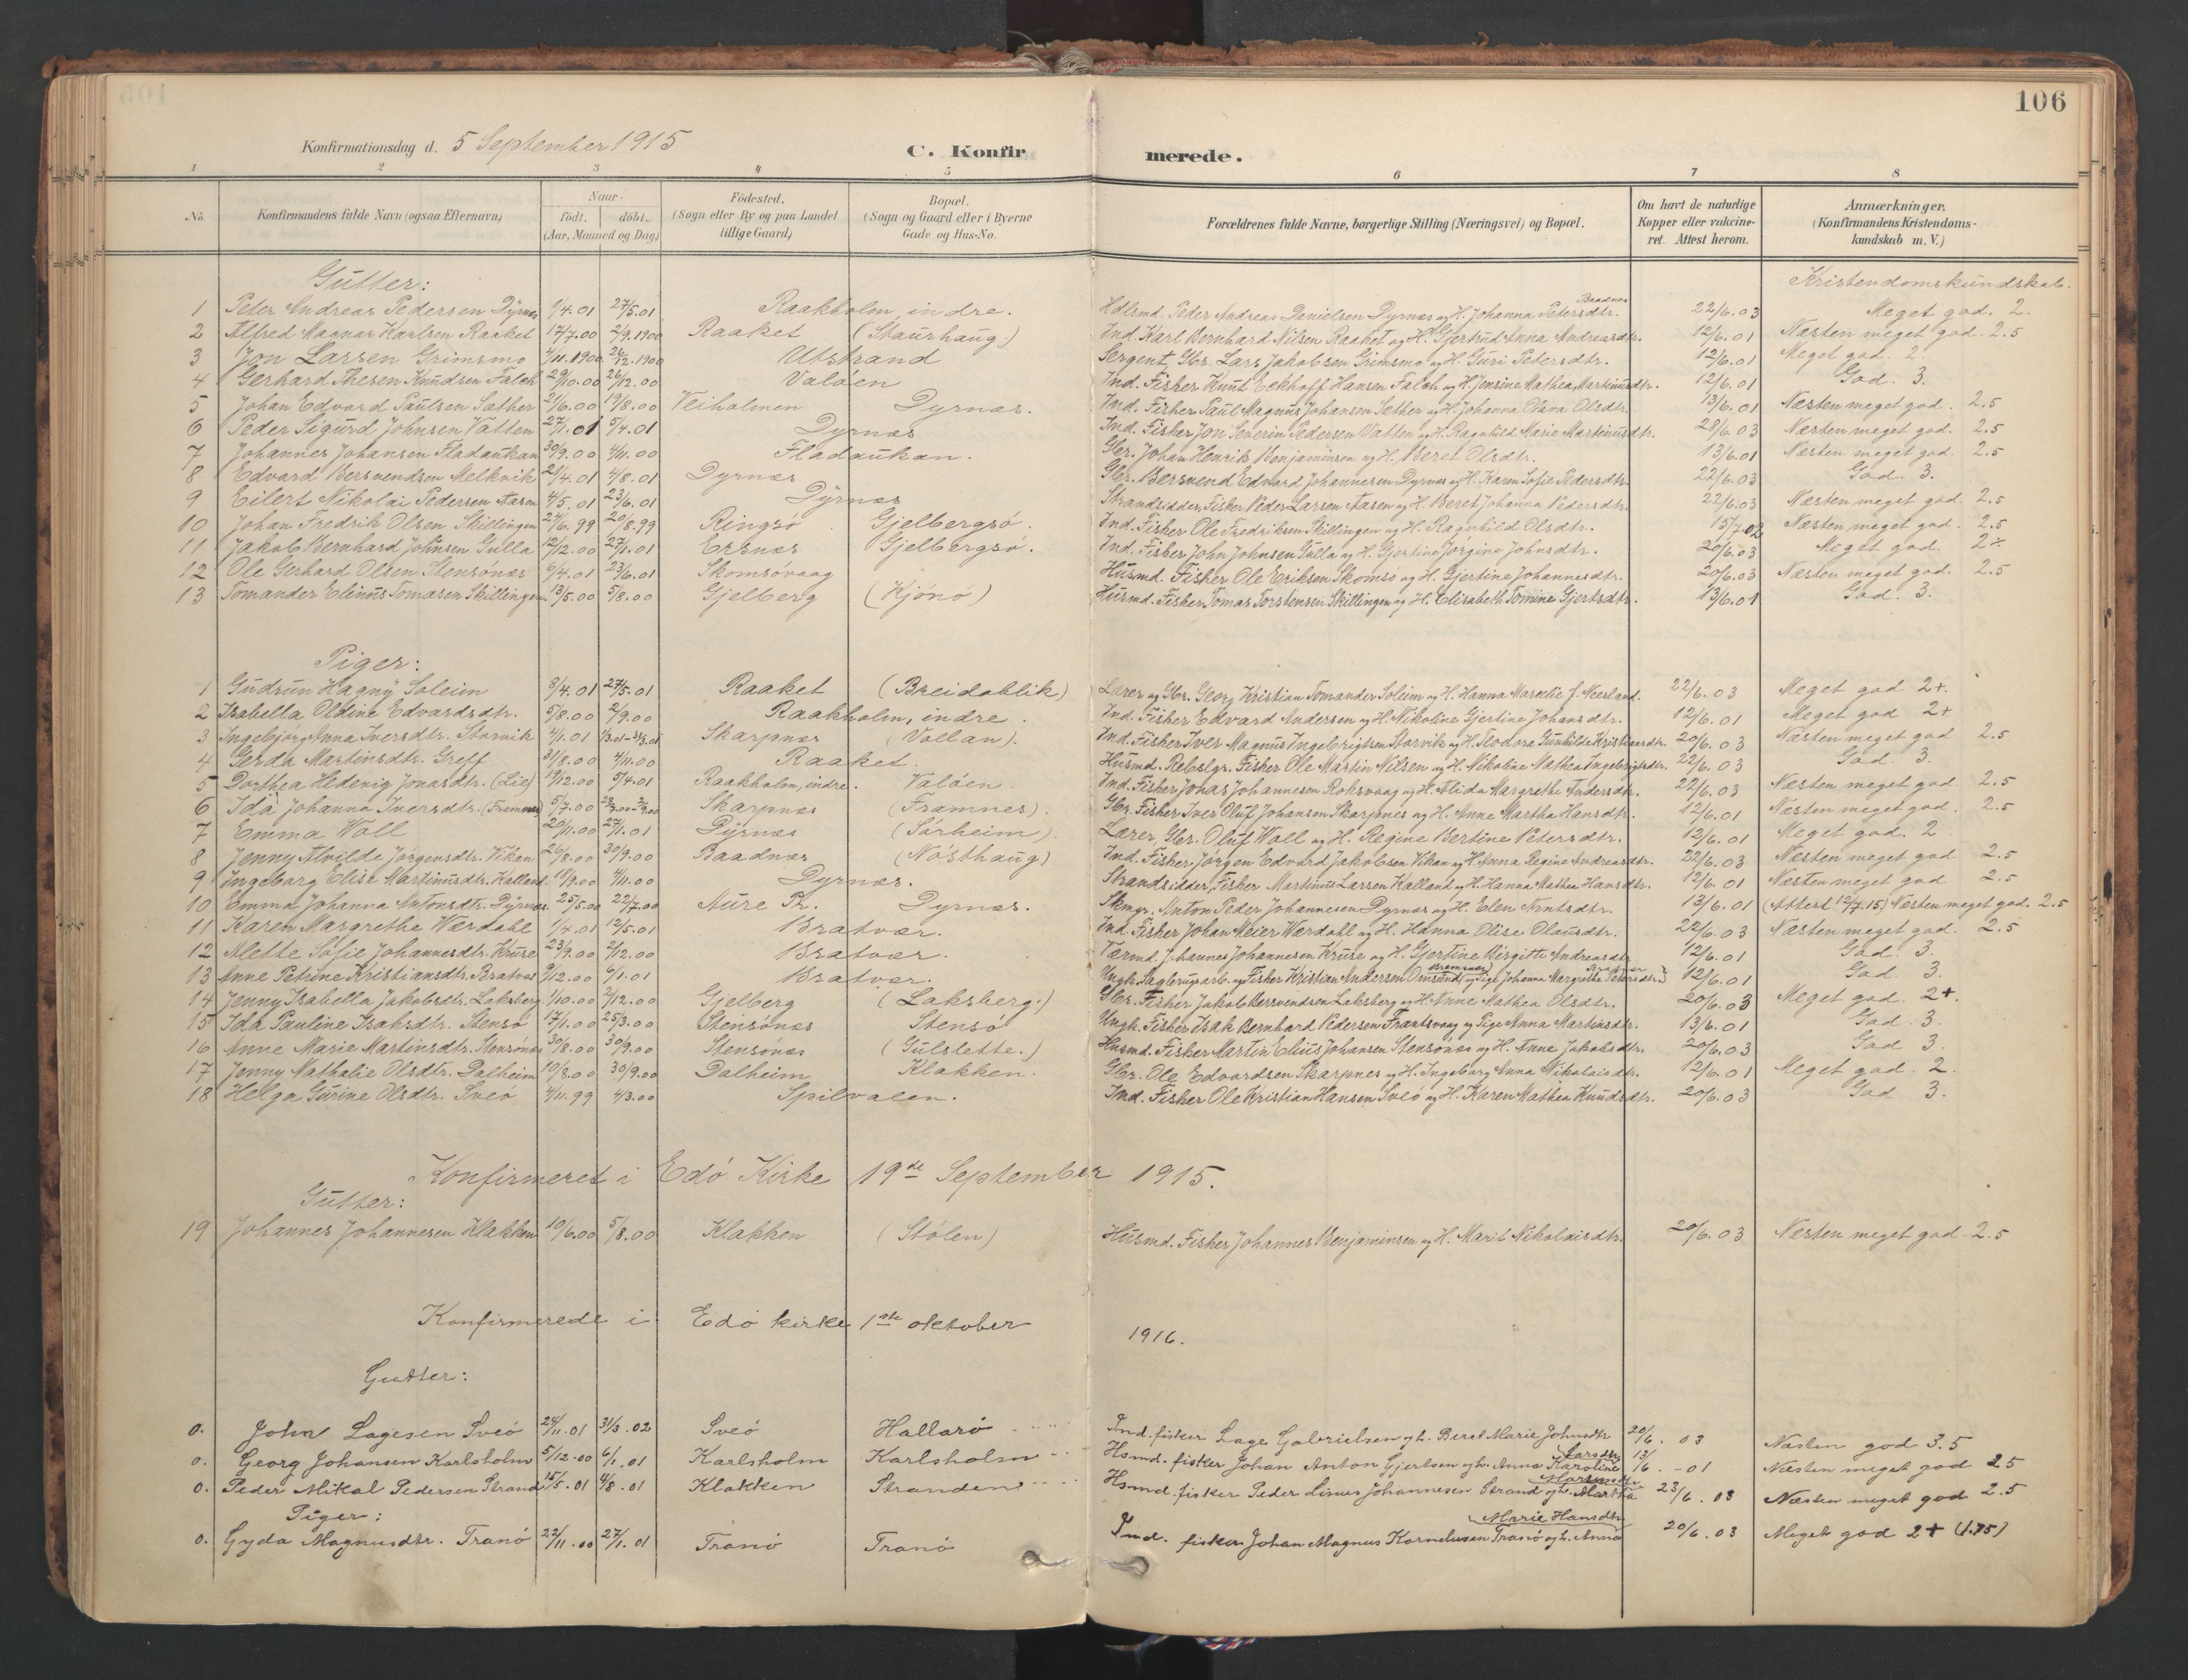 106
Konfirmationsdag d. 5 September 1915
C. Konfirmerede.
1 2 3 4 5 6 7 8
No. | Konfirmandens fulde Navn (ogsaa Efternavn) | Naar födt. döbt. (Aar, Maaned og Dag) | Födested. (Sogn eller By og paa Landet tillige Gaard) | Bopæl. (Sogn og Gaard eller i Byerne Gade og Hus-No. | Forældrenes fulde Navne, borgerlige Stilling (Næringsvei) og Bopæl. | Om havt de naturlige Kopper eller vakcineret. Attest herom. | Anmærkninger. (Konfirmandens Kristendomskundskab m. V.)
Gutter: Kristendomskundskab.
1 Peter Andreas Pedersen Dyrnæs 1/4.01 27/5.01 Raakholm, indre. Hdlsmd. Peder Andreas Danielsen Dyrnæs og H. Johanna Petersdtr. Baadnes 22/6.03 Meget god. 2.
2 Alfred Magnar Karlsen Raaket 17/7.00 2/9.1900 Raaket (Staurhaug.) Ind. Karl Bernhard Nilsen Raaket og H. Gjertrud Anna Andreasdtr. 12/6.01 Næsten meget god. 2.5
3 Jon Larsen Grimsmo 7/11.1900 26/12.1900 Utstrand Sergent, Gbr. Lars Jakobsen Grimsmo og H. Guri Petersdtr. 12/6.01 Meget god. 2.
4 Gerhard Thesen Knudsen Falch 29/10.00 26/12.00 Valøen Ind. Fisker Knut Eckhoff Hansen Falch og H. Jensine Mathea Martinusdtr. 12/6.01 God. 3.
5 Johan Edvard Paulsen Sæther 21/6.00 19/8.00 Veiholmen Dyrnæs. Ind. Fisker Paul Magnus Johansen Sæther og H. Johanna Olava Olsdtr. 13/6.01 Næsten meget god. 2.5
6 Peder Sigurd Johnsen Vatten 27/1.01 5/4.01 Dyrnæs Ind. Fisker Jon Severin Pedersen Vatten og H. Ragnhild Marie Martinusdtr. 28/6.03 Næsten meget god. 2.5
7 Johannes Johansen Fladaukan 30/9.00 4/11.00 Fladaukan. Gbr. Johan Henrik Benjaminsen og H. Beret Olsdtr. 13/6.01 Næsten meget god. 2.5
8 Edvard Bersvendsen Melkvik 21/4.01 4/8.01 Dyrnæs Gbr. Bersvend Edvard Johannesen Dyrnæs og H. Karen Sofie Pedersdtr. 22/6.03 God. 3.
9 Eilert Nikolai Pedersen Aasen 4/5.01 23/6.01 Dyrnæs Strandsidder, Fisker Peder Larsen Aasen og H. Beret Johanna Pedersdtr. 22/6.03 Næsten meget god. 2.5
10 Johan Fredrik Olsen Skillingen 24/6.99 20/8.99 Ringsø Gjelbergsø. Ind. Fisker Ole Fredriksen Skillingen og H. Ragnhild Olsdtr. 15/7.02 Næsten meget god. 2.5
11 Jakob Bernhard Johnsen Gulla 12/12.00 27/1.01 Ersnæs Gjelbergsø. Ind. Fisker John Johnsen Gulla og H. Gjertine Jørgine Johnsdtr. 20/6.03 Meget god. 2÷
12 Ole Gerhard Olsen Stensønæs 6/4.01 23/6.01 Skomsøvaag Husmd. Fisker Ole Eriksen Skomsø og H. Gjertine Johannesdtr. 20/6.03 Næsten meget god. 2.5
13 Tomander Elinus Tomasen Skillingen. 13/5.00 5/8.00 Gjelberg (Kjønø) Husmd. Fisker Tomas Torstensen Skillingen og H. Elisabeth Tomine Gjertsdtr. 13/6.01 God. 3.
Piger:
1 Gudrun Hagny Soleim 8/4.01 27/5.01 Raaket (Breidablik) Lærer og Gbr. Georg Kristian Tomander Soleim og H. Hanna Marethe f. Neerland. 22/6.03 Meget god 2+.
2 Isabella Oldine Edvardsdtr. 5/8.00 2/9.00 Raakholm, indre. Ind. Fisher Edvard Andersen og H. Nikoline Gjertine Johansdtr. 12/6.01 Meget god 2+
3 Ingebjørg Anna Iversdtr. Storvik 4/1.01 1/3.01-31/3.01 Skarpnæs (Vollan). Ind. Fisker Iver Magnus Ingebrigtsen Storvik og H. Teodora Gunhilde Kristiansdtr. 20/6.03 Næsten meget god 2.5
4 Gerda Martinsdtr. Greff 31/8.00 4/11.00 Raaket. Husmd. Rebslgr. Fisker Ole Martin Nilsen og H. Nikoline Mathea Ingebrigtsdtr. 22/6.03 God. 3.
5 Dorthea Hedevig Jonasdtr. (Lie) 19/12.00 5/4.01 Raakholm, indre. Valøen. Ind. Fisker Jonas Johannesen Roksvaag og H. Alida Margrethe Andersdtr. 22/6.03 Næsten meget god. 2.5
6 Ida Johanna Iversdtr. (Fremnes) 5/7.00 Skarpnæs (Framnes). Gbr. Fisker Iver Oluf Johansen Skarpnes og H. Anne Martha Hansdtr. 12/6.01 Næsten meget god. 2.5
7 Emma Woll 20/11.00 27/1.01 Dyrnæs (Sørheim). Lærer, Gbr. Oluf Woll og H. Regine Bertine Petersdtr. 12/6.01 Meget god. 2
8 Jenny Alvilde Jørgensdtr. Viken 26/8.00 30/9.00 Baadnæs (Nøsthaug) Ind. Fisker Jørgen Edvard Jakobsen Vikan og H. Anna Regine Andreasdtr. 22/6.03 Næsten meget god 2.5
9 Ingeborg Elise Martinusdtr. Kalland. 18/9.00 4/11.00 Dyrnæs. Strandsidder, Fisker Martinus Larsen Kalland og H. Hanna Mathea Hansdtr. 12/6.01 Næsten meget god 2.5
10 Emma Johanna Antonsdtr. Dyrnæs. 25/5.00 22/7.00 Aure Pr. Dyrnæs. Skmgr. Anton Peder Johannesen Dyrnæs og H. Elen Arntsdtr. 13/6.01 (Attest 12/7.15) Næsten meget god. 2.5
11 Karen Margrethe Wærdahl 1/4.01 12/5.01 Bratvær. Ind. Fisker Johan Meier Wærdahl og H. Hanna Olise Olausdtr. 22/6.03 Næsten meget god. 2.5
12 Alette Sofie Johannesdtr. Kruse 23/9.00 2/12.00 Bratvær. Værmd. Johannes Johannesen Kruse og H. Gjertine Birgitte Andreasdtr 12/6.01 God. 3.
13 Anne Petrine Kristiansdtr. Bratvær 9/12.00 6/1.01 Bratvær. Ungk. Sagbrugsarb. og Fisker Kristian Andersen Omsund (Bremsnæs) og Pige Johanna Margrethe Petersdtr. Bratvær 12/6.01 God. 3.
14 Jenny Isabella Jakobsdtr. Laksberg. 1/10.00 2/12.00 Gjelberg (Laksberg.) Gbr. Fisker Jakob Bersvendsen Laksberg og H. Anne Mathea Olsdtr. 20/6.03 Meget god. 2+.
15 Ida Pauline Isaksdtr. Stensø 17/1.00 25/3.00 Stensønæs Stensø Ungk. Fisker Isak Bernhard Pedersen Fraatsvaag og Pige Anna Martinsdtr. 13/6.01 God. 3.
16 Anne Marie Martinsdtr. Stensønæs 30/8.00 30/9.00 Stensønæs (Gulslette.) Husmd. Fisker Martin Elius Johansen Stensønæs og H. Anne Jakobsdtr. 20/6.03 God 3.
17 Jenny Nathalie Olsdtr. Dalheim 10/8.00 30/9.00 Dalheim Klakken. Gbr. Ole Edvardsen Skarpnes og H. Ingeborg Anna Nikolaisdtr. 12/6.01 Meget god. 2.
18 Helga Gurine Olsdtr. Sveø 4/11.99 4/3.00 Spilvalen. Ind. Fisker Ole Kristian Hansen Sveø og H. Karen Mathea Knudsdtr. 20/6.03 God 3.
Konfirmeret i Edø Kirke 19de September 1915.
Gutter:
19 Johannes Johannesen Klakken 10/6.00 5/8.00 Klakken (Stølen) Husmd. Fisker Johannes Benjaminsen og H. Marit Nikolaisdtr. 20/6.03 Næsten meget god. 2.5
Konfirmerede i Edø kirke 1ste oktober 1916.
Gutter:
0. John Lagesen Sveø 24/11.01 31/3.02 Sveø Hallarø Ind. fisker Lage Gabrielsen og h. Beret Marie Johnsdtr 20/6.03 Næsten god 3.5
0. Georg Johansen Karlsholm 5/12.00 6/1.01 Karlsholm Karlsholm Hsmd. fisker Johan Anton Gjertsen og h. Anna Karoline Larsdtr 13/6.-01 Næsten meget god 2.5
0. Peder Mikal Pedersen Strand 15/5.01 4/8.01 Klakken Stranden Hsmd. fisker Peder Linus Johannesen Strand og h. Martha 23/6.03 Næsten meget god 2.5
Piger:
0. Gyda Magnusdtr. Tranø 22/11.00 27/1.01 Tranø Tranø Ind. fisker Johan Magnus Kornelusen Tranø og h. Anna Marie Hansdtr 20/6.03 Meget god 2+ (1.75)